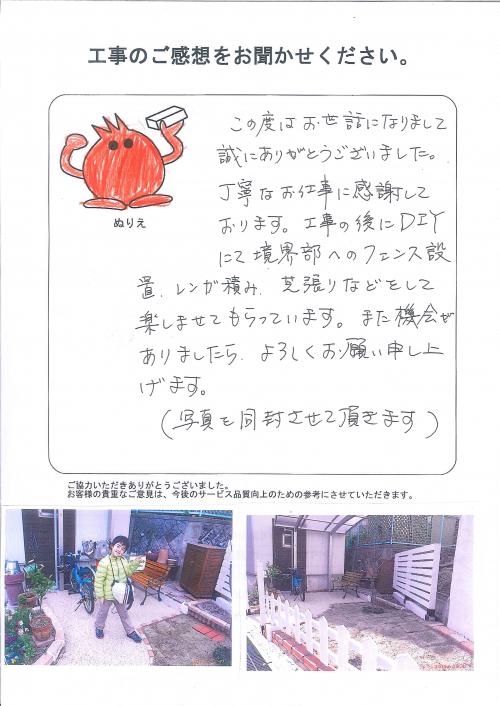 工事のご感想をお聞かせください。
この度はお世話になりまして
誠にありがとうございました。
丁寧なお仕事に感謝して
おります。工事の後にDIY
にて境界部へのフェンス設
置、レンガ積み、芝張りなどをして
楽しませてもらっています。また機会が
ありましたら、よろしくお願い申し上
げます。
(写真を同封させて頂きます)
ぬりえ
ご協力いただきありがとうございました。
お客様の貴重なご意見は、今後のサービス品質向上のための参考にさせていただきます。